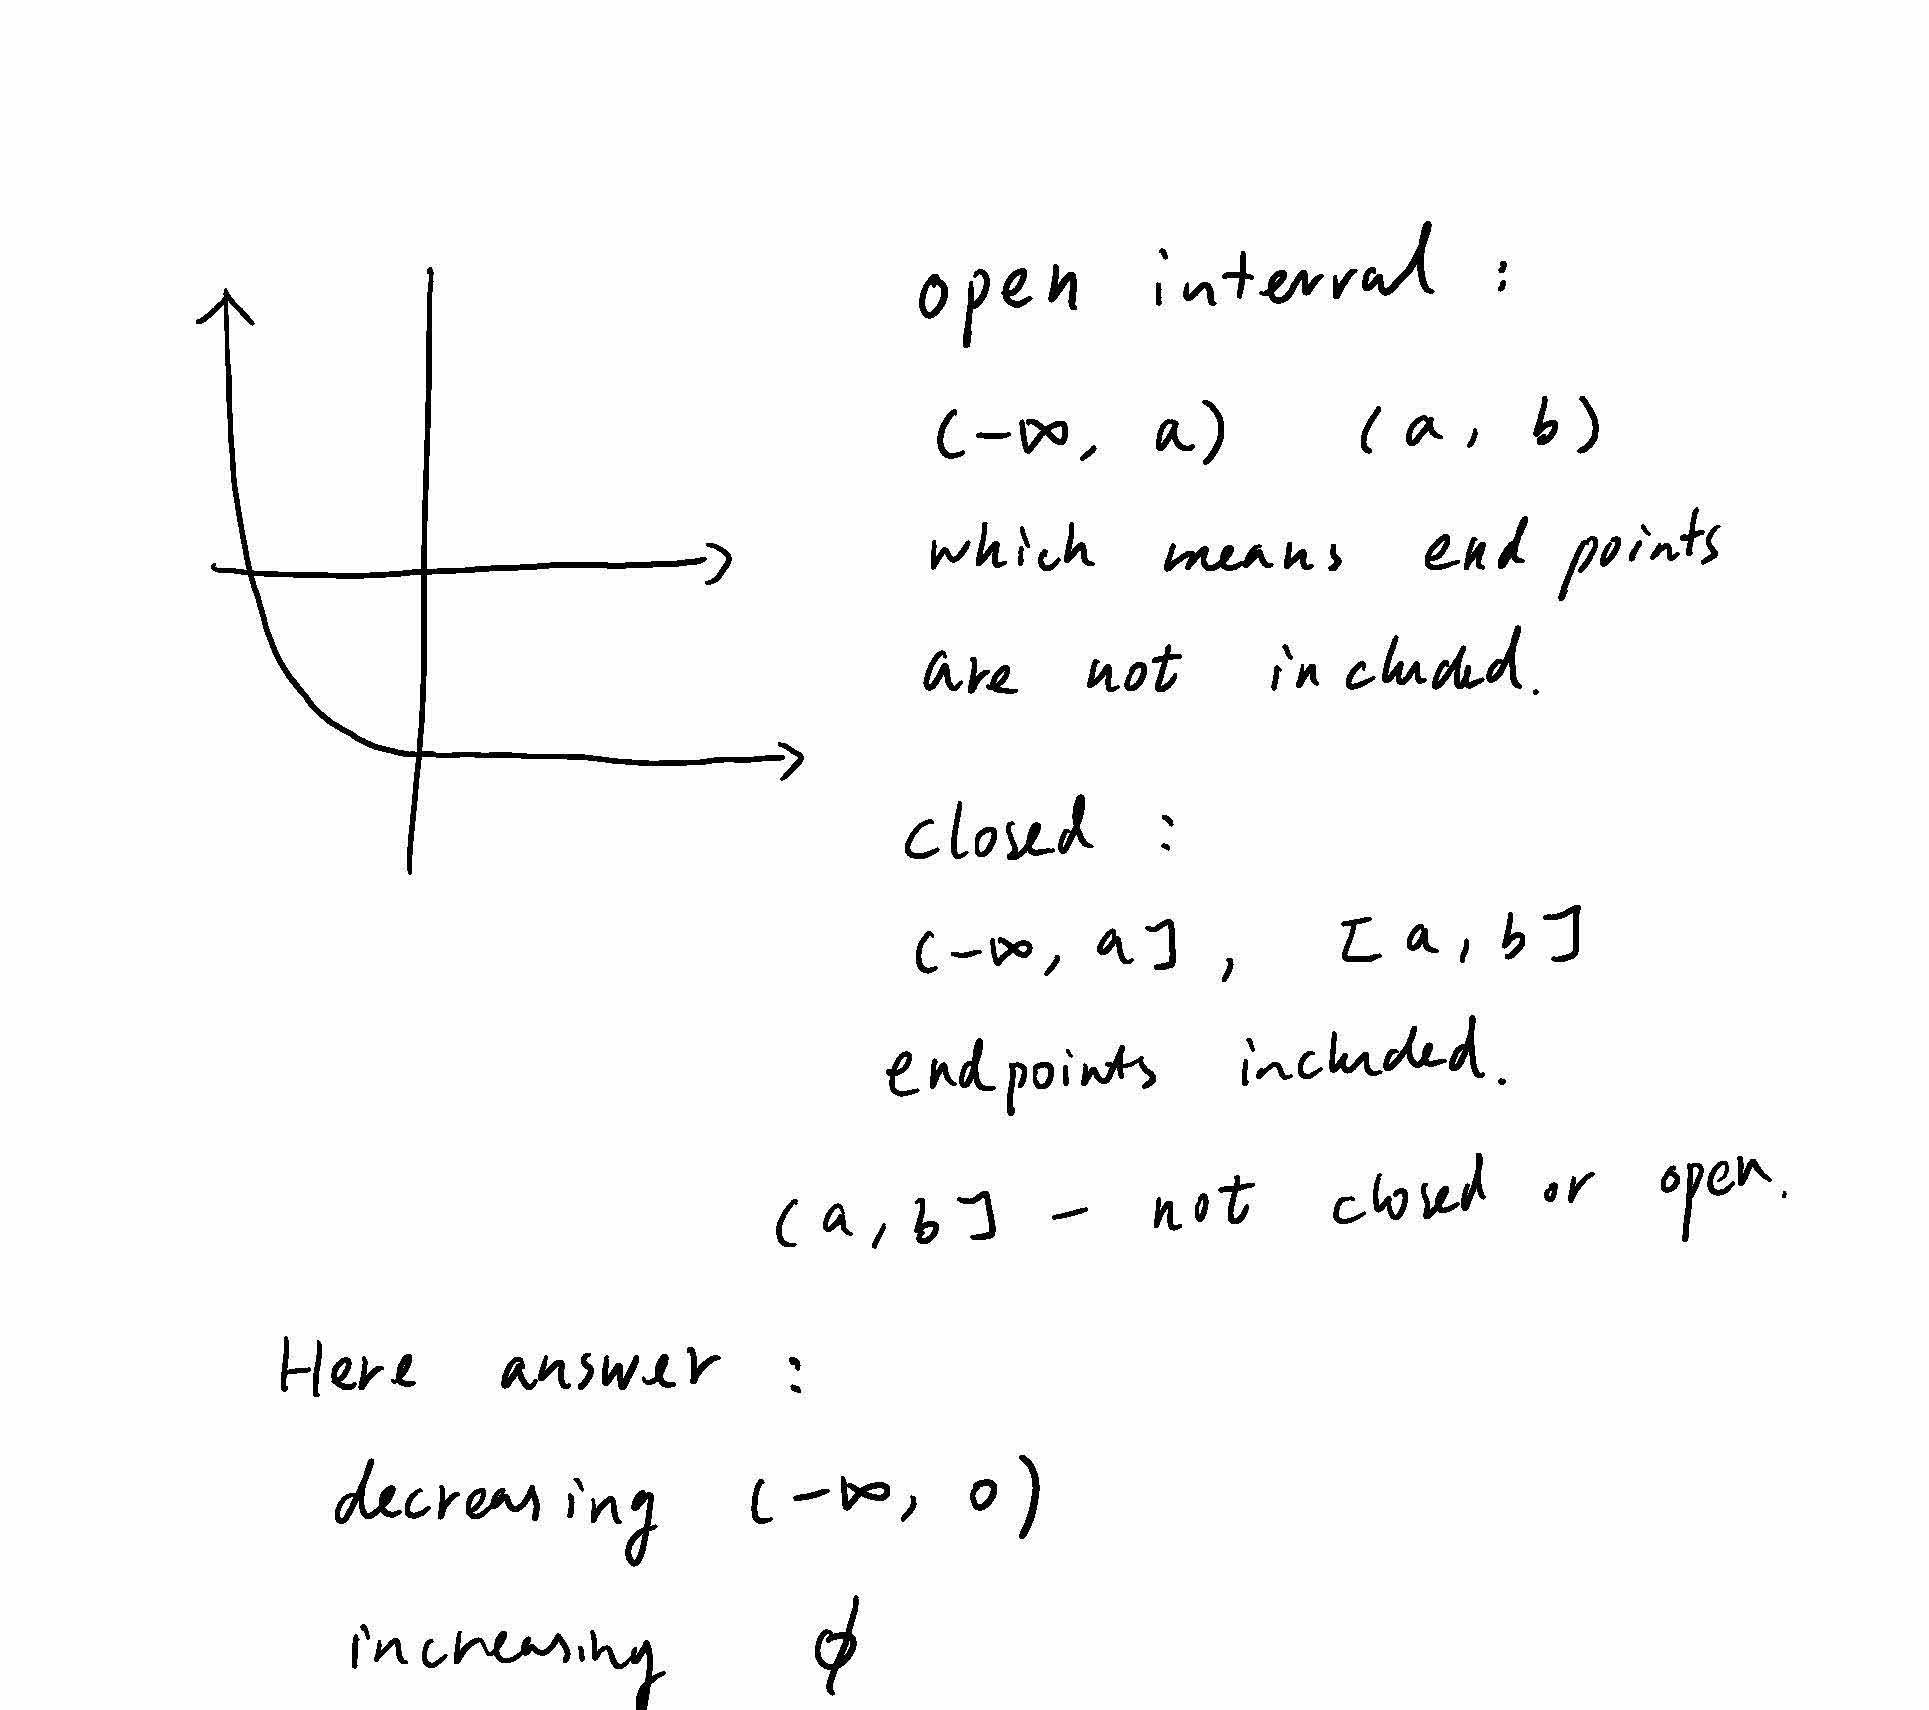 open interval :
(-∞, a) (a, b)
which means end points
are not included.
closed :
(-∞, a] , [a, b]
endpoints included.
(a, b] - not closed or open.
Here answer :
decreasing (-∞, 0)
increasing ϕ